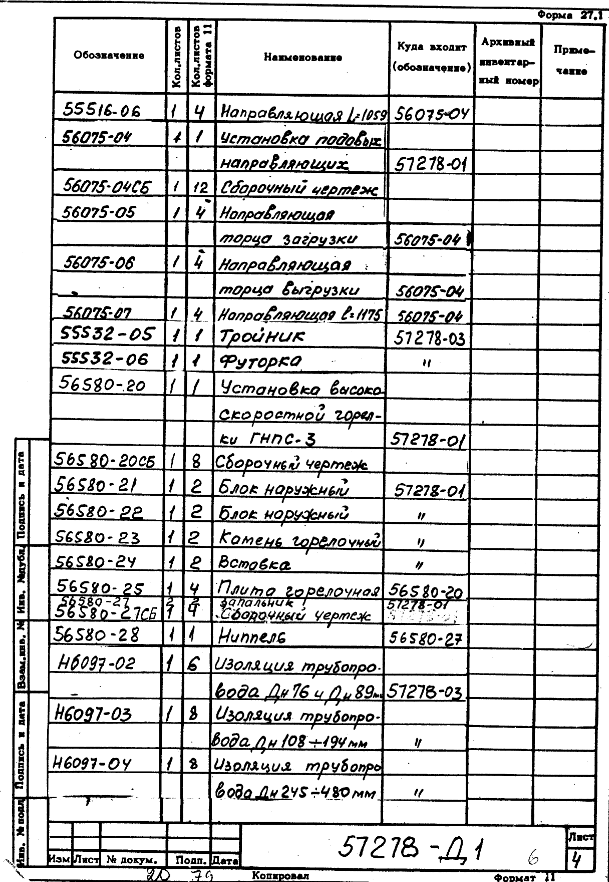 Форма 27.1
Обозначение Кол.листов Кол.листов формата 11 Наименование Куда входит (обозначение) Архивный инвентарный номер Примечание
55516-06 1 4 Направляющая L=1059 56075-04
56075-04 1 1 Установка подовых
направляющих 57278-01
56075-04СБ 1 12 Сборочный чертеж
56075-05 1 4 Направляющая
торца загрузки 56075-04
56075-06 1 4 Направляющая
торца выгрузки 56075-04
56075-07 1 4 Направляющая l=1175 56075-04
55532-05 1 1 Тройник 57278-03
55532-06 1 1 Футорка "
56580-20 1 1 Установка высоко-
скоростной горел-
ки ГНПС-3 57278-01
56580-20СБ 1 8 Сборочный чертеж
56580-21 1 2 Блок наружный 57278-01
56580-22 1 2 Блок наружный "
56580-23 1 2 Камень горелочный "
56580-24 1 2 Вставка "
56580-25 1 4 Плита горелочная 56580-20
56580-27 Запальник 57278-01
56580-27СБ 1 4 Сборочный чертеж
56580-28 1 1 Ниппель 56580-27
Н6097-02 1 6 Изоляция трубопро-
вода Дн 76 и Дн 89мм 57278-03
Н6097-03 1 8 Изоляция трубопро-
вода Дн 108÷194мм "
Н6097-04 1 8 Изоляция трубопро
вода Дн 245÷480мм "
Подпись и дата
Инв. №дубл.
Взам.инв. №
Подпись и дата
Инв. №подл
57278-Д1 6
Лист
4
Изм Лист № докум. Подп. Дата
20 79 Копировал Формат 11